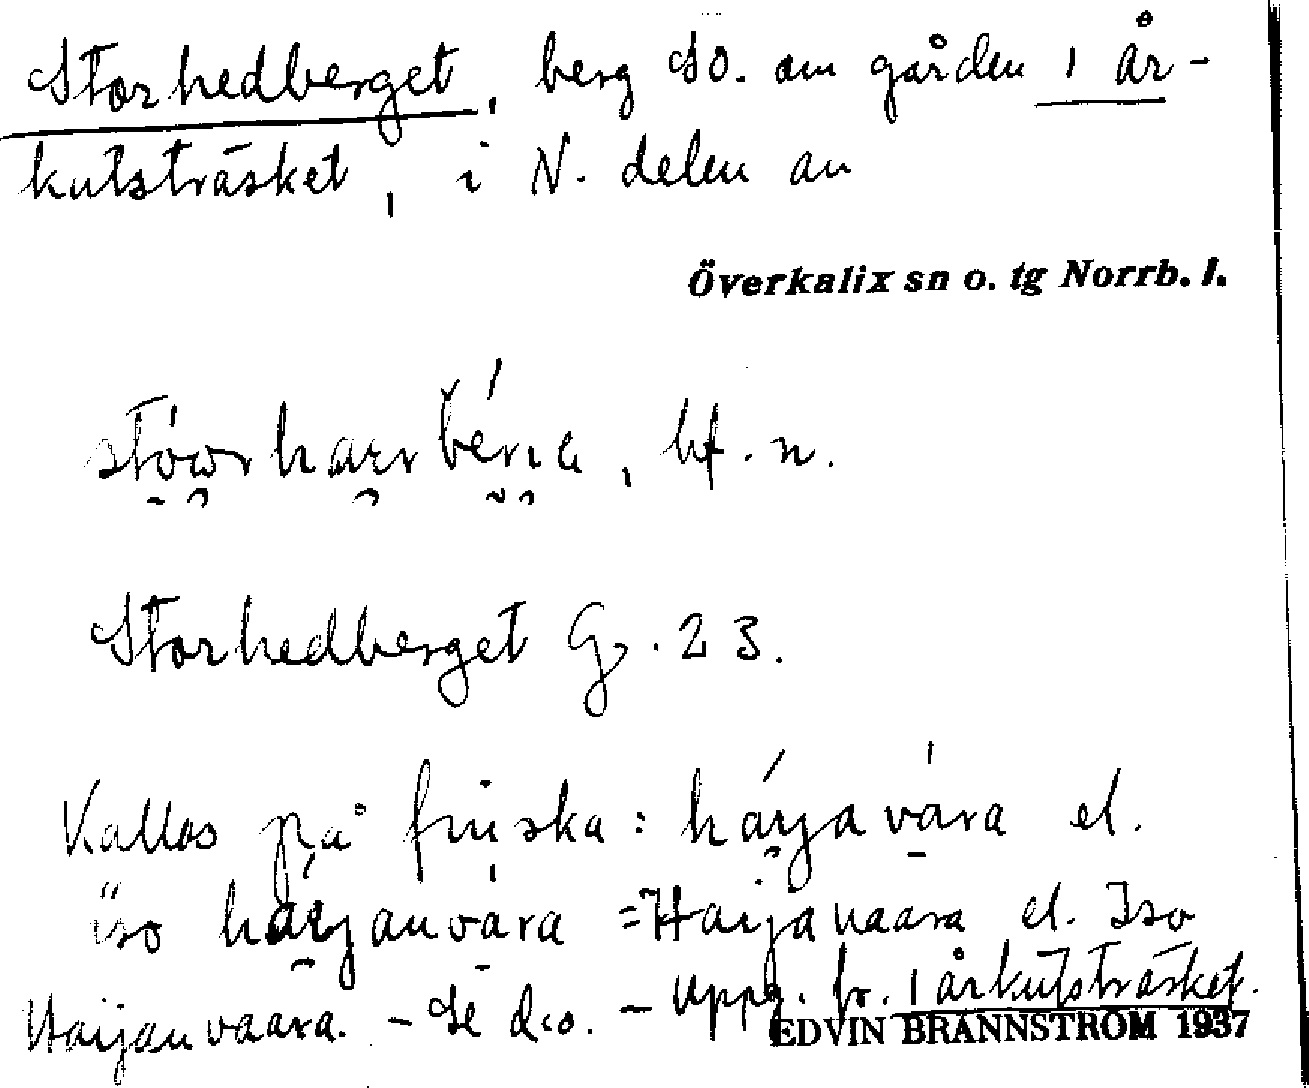 Storhedberget, berg SO. om gården 1 år-
kutsträsket, i N. delen av
Överkalix sn o. tg Norrb. l.
bf. n.
Storhedberget G. 23.
Kallas på finska: hárjavára el.
iso hárjanvára = Harjavaara el. Iso
Harjanvaara. - Se d:o. - Uppg. fr. 1 årkutsträsket.
EDVIN BRÄNNSTRÖM 1937